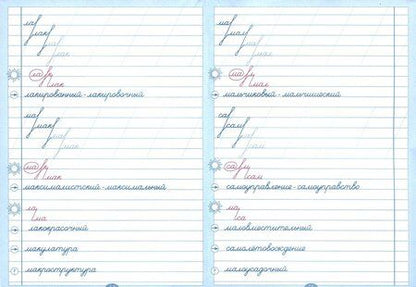 ла
лак
лак
ла
лак
лакированный - лакировочный
ма
мак
мак
ма
мак
максималистский - максимальный
ла
ма
лакокрасочный
макулатура
макроструктура
ма
мал
мал
ма
мальчиковый - мальчишеский
са
сам
сам
са
сам
самоуправление - самоуправство
ма
са
маловместительный
самолётовождение
малоусадочный